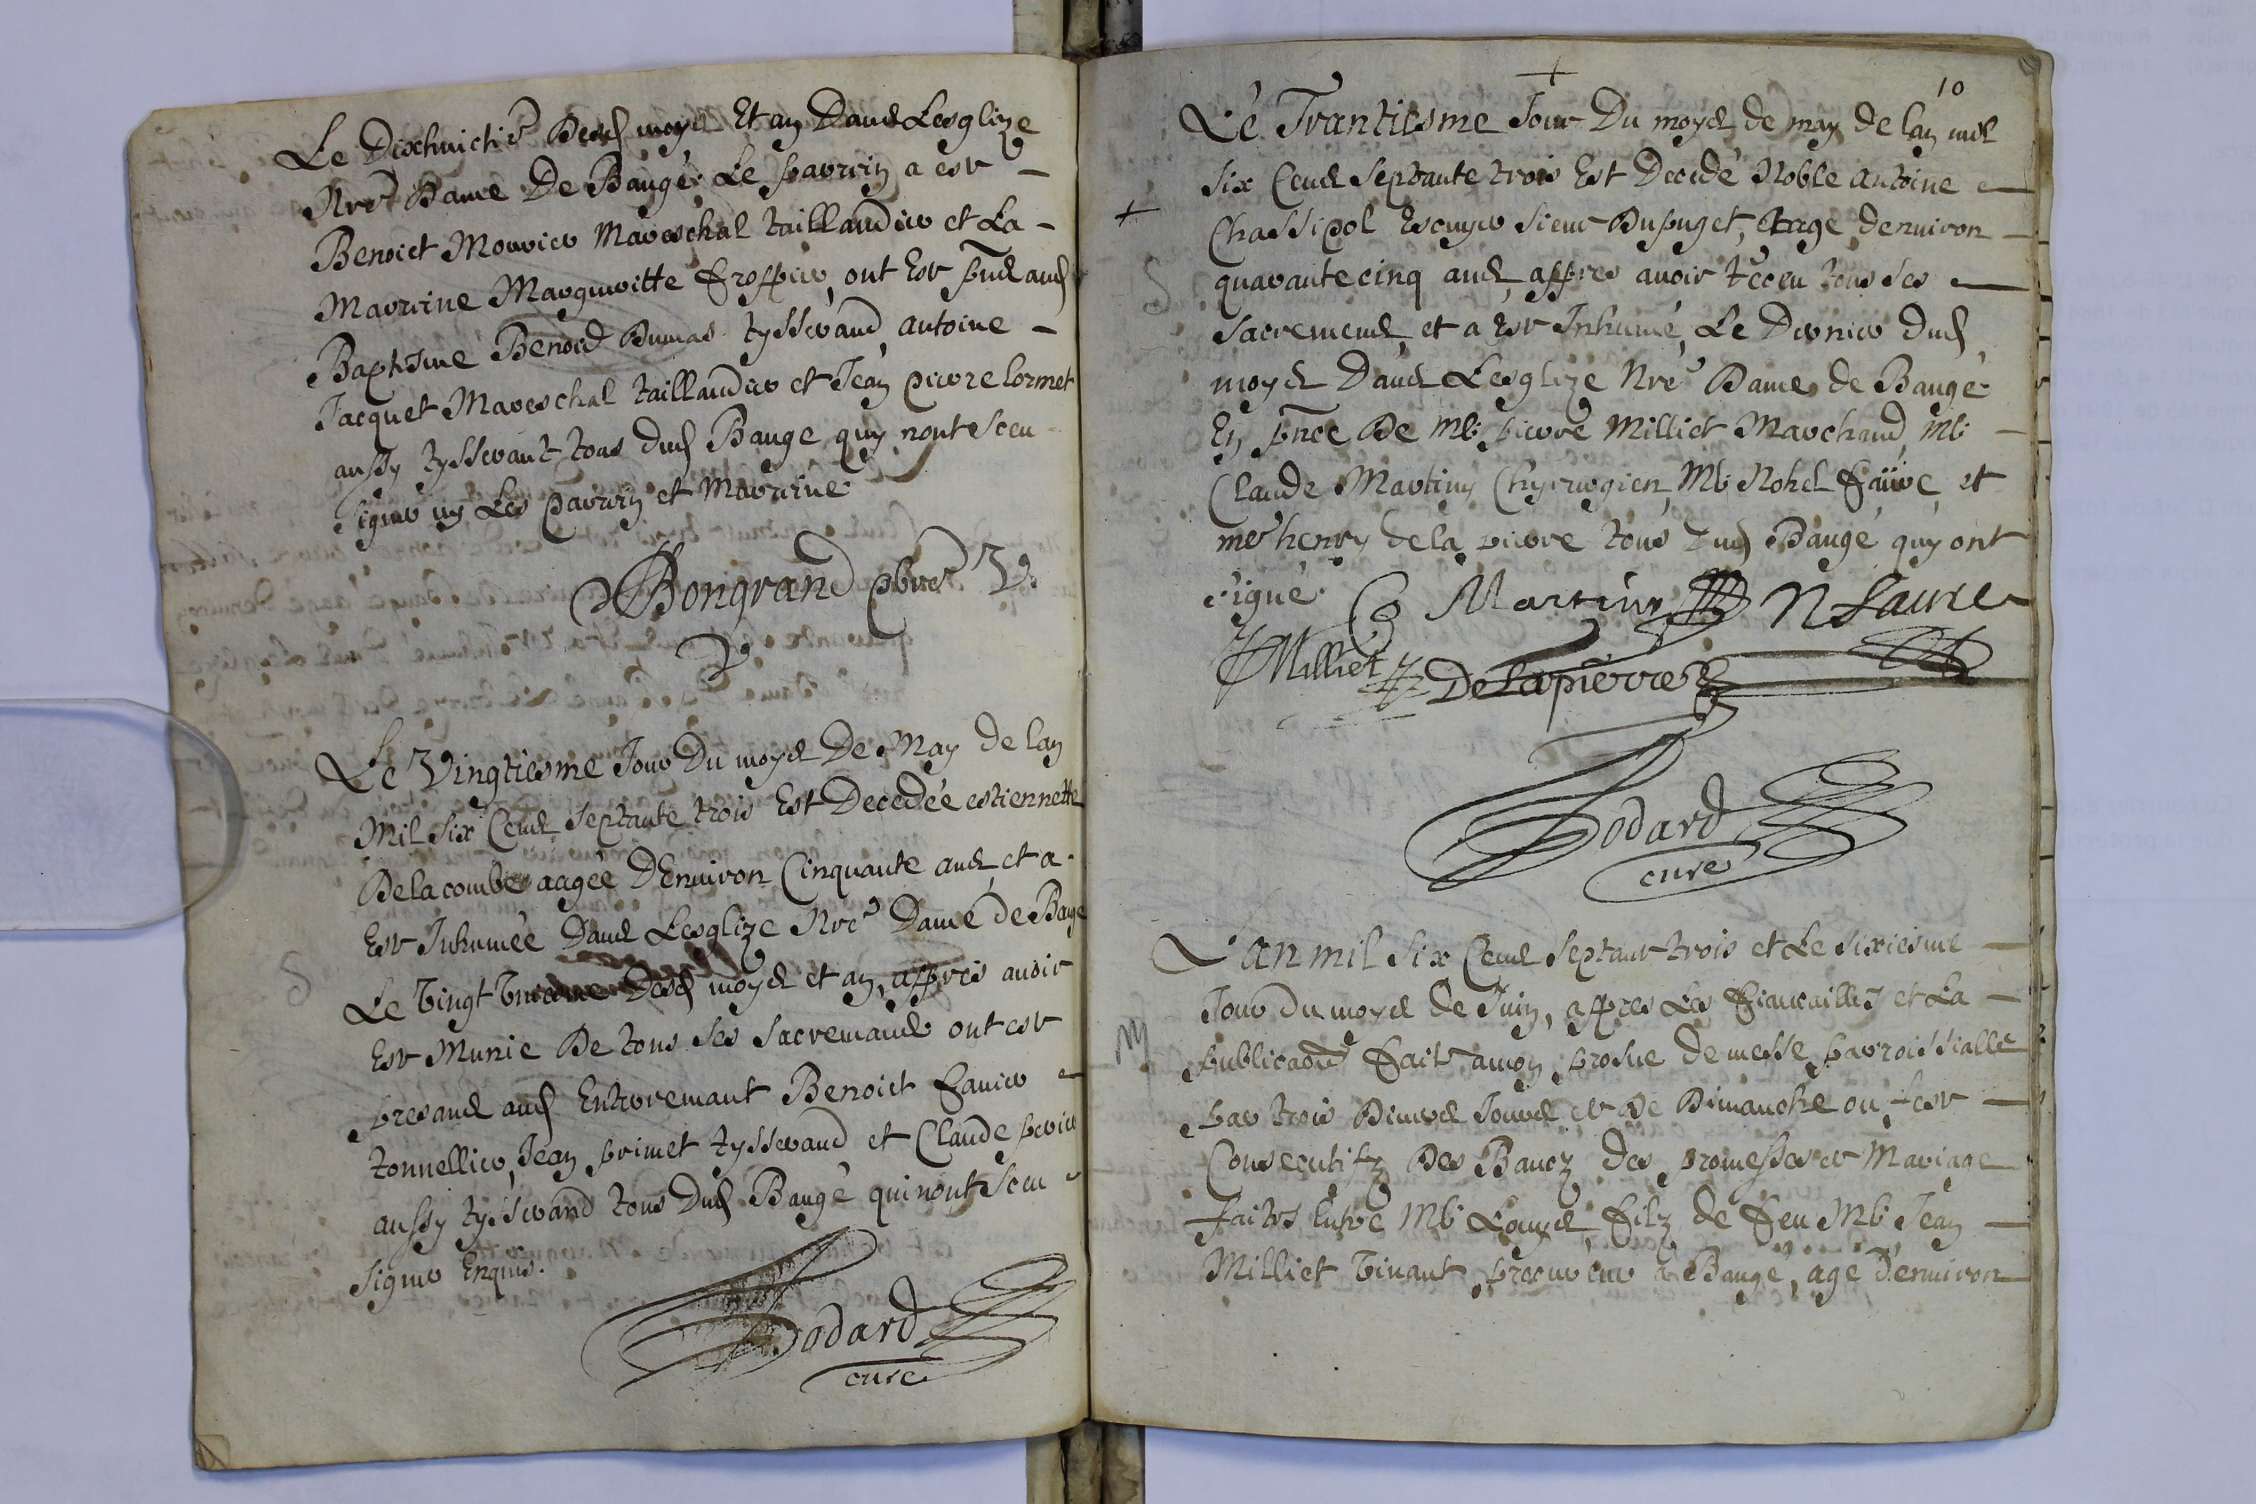 Le Dixhuictie Desd moys Et an Dans Lesglize
Nre Dame De Baugé Le parrin a este
Benoict Mourier Mareschal taillandier et La
Marrine Margueritte Frossier, ont Este pnts aud
Baptisme Benoict Dumas tysserand, antoine
Jacquet Mareschal taillandier et Jean pierre lormet
aussy tysserant tous dud Bauge quy nont sceu
signer ny Les parrin et Marrine
Bongrand pbre V.
Le Vingtiesme Jour Du moys De May de lan
Mil six Cens septante trois Est Decedée estiennette
Delacombe aagée DEnviron Cinquante ans et a
Este Inhumée Dans Lesglize Nre Dame de Bauge
Le vingt Desd moys et an, appres avoir
Este Munie De tous ses sacremans ont este
presans aud Enterremant Benoict
tonnellier, Jean primet tysserand et Claude
aussy tysserand tous Dud Baugé qui nont sceu
signer Enquis.
Dodard
curé
10
Le Trantiesme Jour Du moys de may de lan mil
six Cens septante trois Est Decedé Noble antoine
Chassipol Escuyer sieur Dupuget, Eage denviron
quarantecinq ans appres avoir receu tous ses
sacremens et a Este Inhumé Le Dernier Dud
moys Dans Lesglize Nre Dame de Baugé
En pnce De Mr pierre Milliet Marchand Mr
Claude Martin Chyrurgien Mr Nohel Faure et
me henry dela pierre tous dud Baugé quy ont
signé.
C Martin N Faure
Milliet Delapierre
Dodard
curé
Lan mil six Cens septante trois et Le sixiesme
Jour du moys de Juin, appres Les Fiancailles et La
publicaons Faite a mon prosne de messe parroissialle
par trois Divers Jours de Dimanche ou feste
Consecutifz Des Bancz des promesses de Mariage
faites Entre Mr Louys, Filz de Feu Mr Jean
Milliet vivant procureur a Baugé, agé denviron